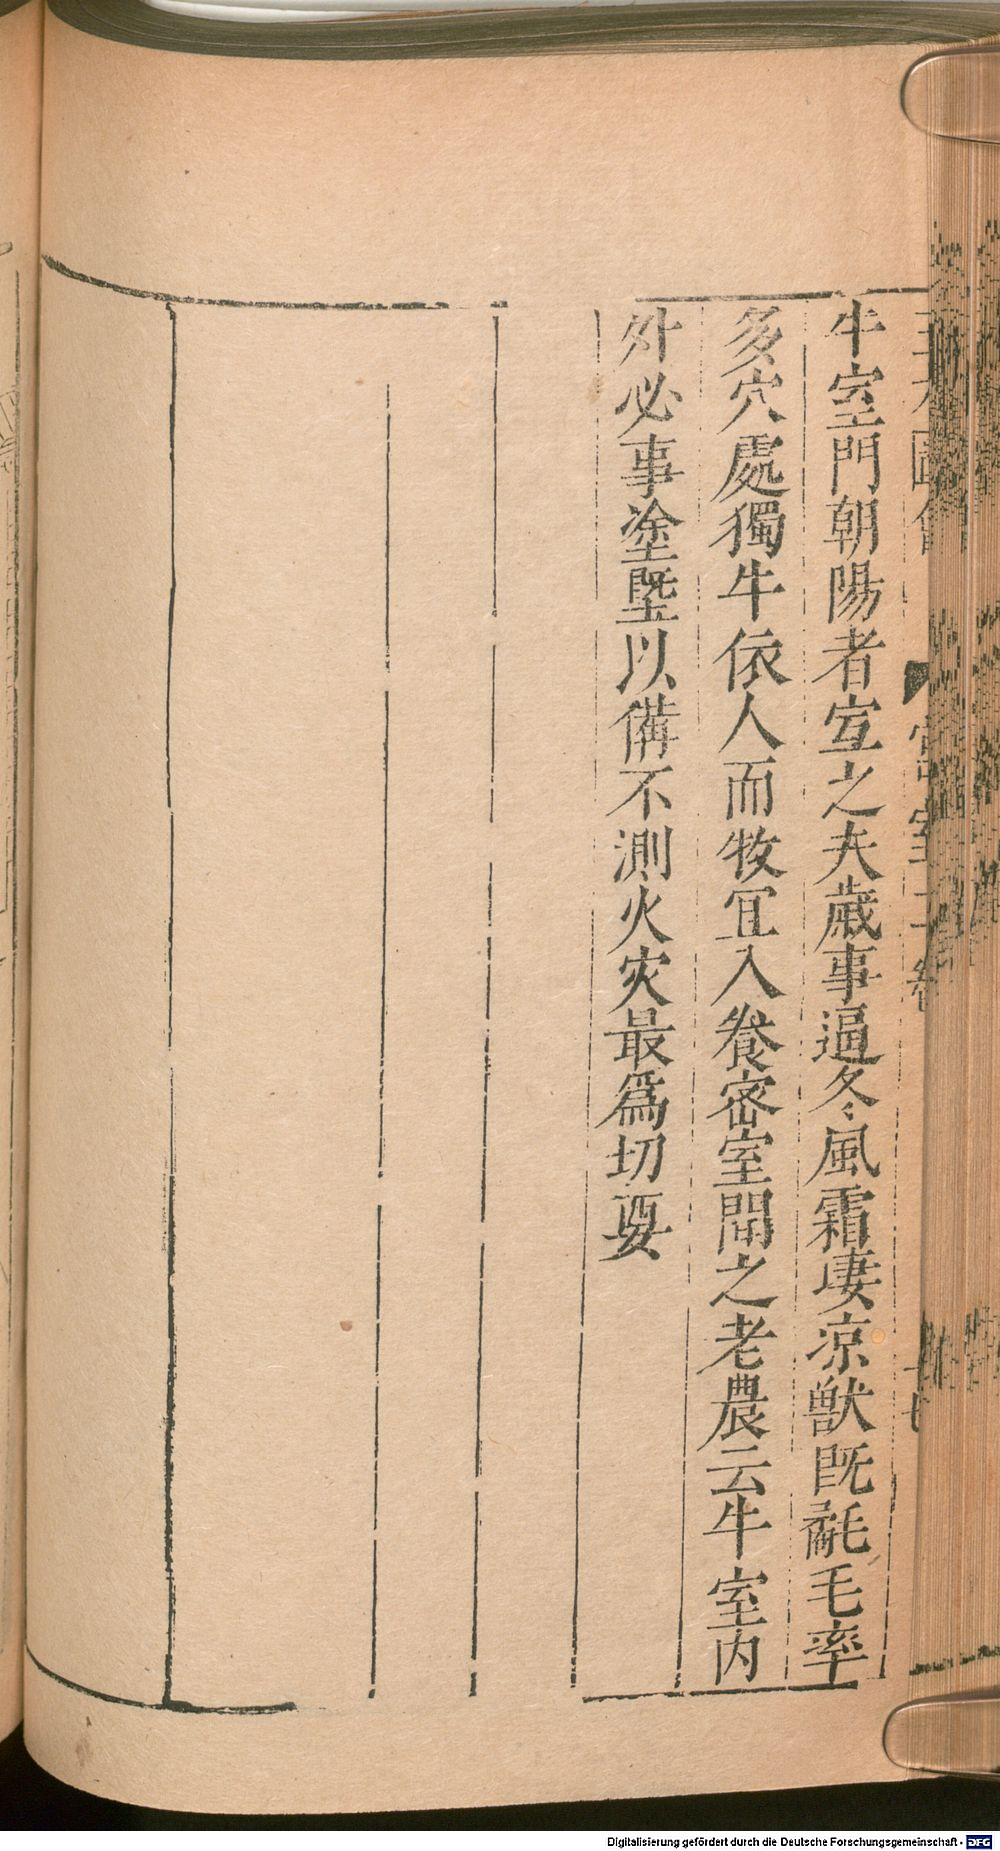 牛室門朝陽者宜之夫歲事逼冬風霜凄凉獸既氄毛率
多穴處獨牛依人而牧冝入養宻室聞之老農云牛室内
外必事塗塈以備不測火灾最爲切要
宫室二卷
Digitalisierung gefördert durch die Deutsche Forschungsgemeinschaft - DFG